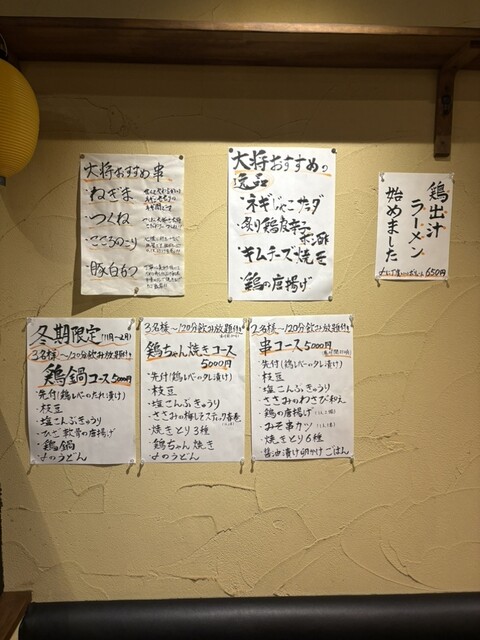 大将おすすめ串
・ねぎま
・つくね
・こころのこり
・豚白もつ
大将おすすめの
逸品
・ネギじゃこサラダ
・炙り鶏皮辛子
ポン酢
・キムチーズ焼き
・鶏の唐揚げ
鶏出汁
ラーメン
始めました
650円
冬期限定(11月〜2月)
3名様〜120分飲み放題付き
鶏鍋コース5000円
・先付(鶏レバーのたれ漬け)
・枝豆
・塩こんぶきゅうり
・ひざ軟骨の唐揚げ
・鶏鍋
・〆のうどん
3名様〜120分飲み放題付き
鶏ちゃん焼きコース
5000円
・先付(鶏レバーのタレ漬け)
・枝豆
・塩こんぶきゅうり
・ささみの梅しそスティック春巻
・焼きとり3種
・鶏ちゃん焼き
・〆のうどん
2名様〜120分飲み放題付き
串コース5000円
・先付(鶏レバーのタレ漬け)
・枝豆
・塩こんぶきゅうり
・ささみのわさび和え
・鶏の唐揚げ
・みそ串カツ
・焼きとり6種
・醤油漬け卵かけごはん